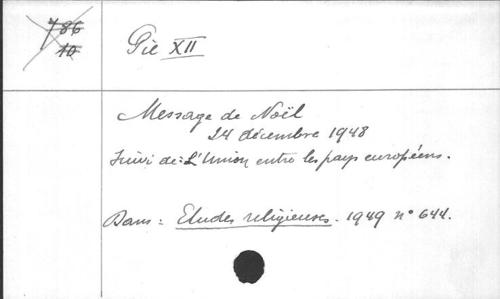 786
10
Pie XII
Message de Noël
24 décembre 1948
Suivi de: L'Union entre les pays européens.
Dans: Etudes religieuses. 1949 n° 644.